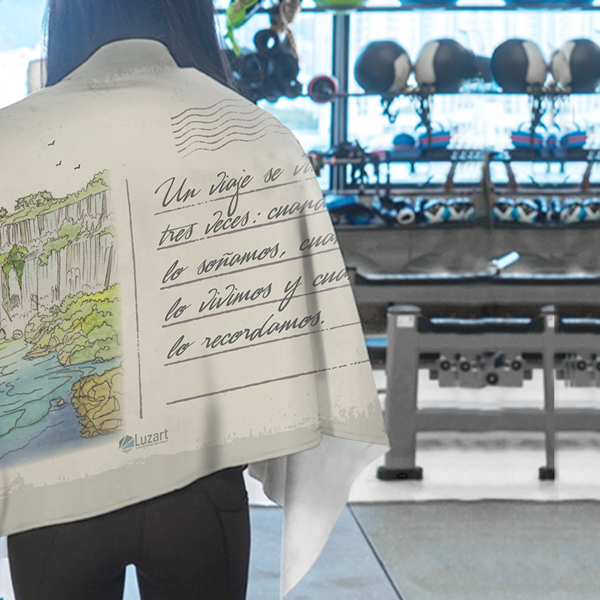 Un viaje se
tres veces:
lo soñamos,
lo vivimos y
lo recordamos.
Luzart